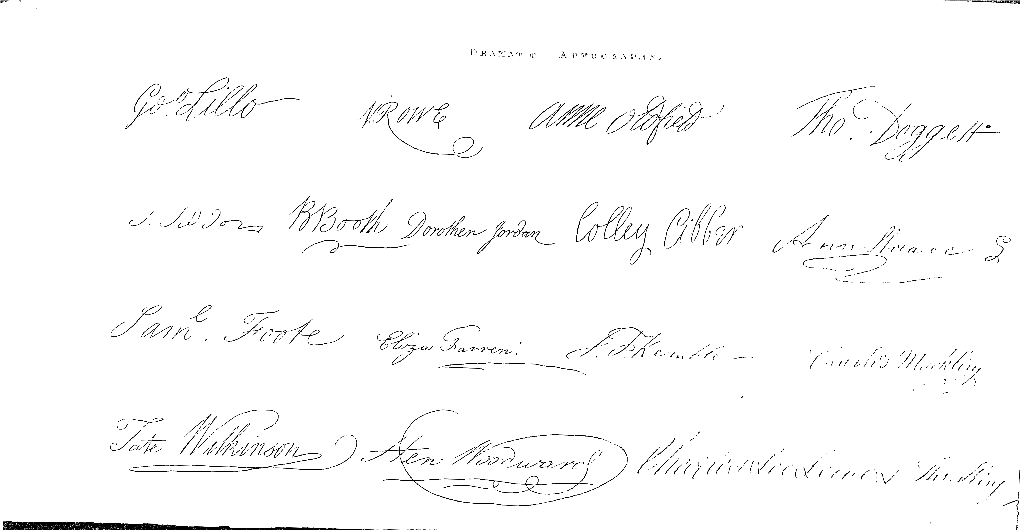 DRAMATIC AUTOGRAPHS.
Geo. Lillo N Rowe Anne Oldfield Tho. Doggett
S. Siddons B Booth Dorothea Jordan Colley Cibber
Saml. Foote Eliza Farren. J. P. Kemble Charles Macklin
Tate Wilkinson Hen Woodward Charles Lee Lewes Tho King